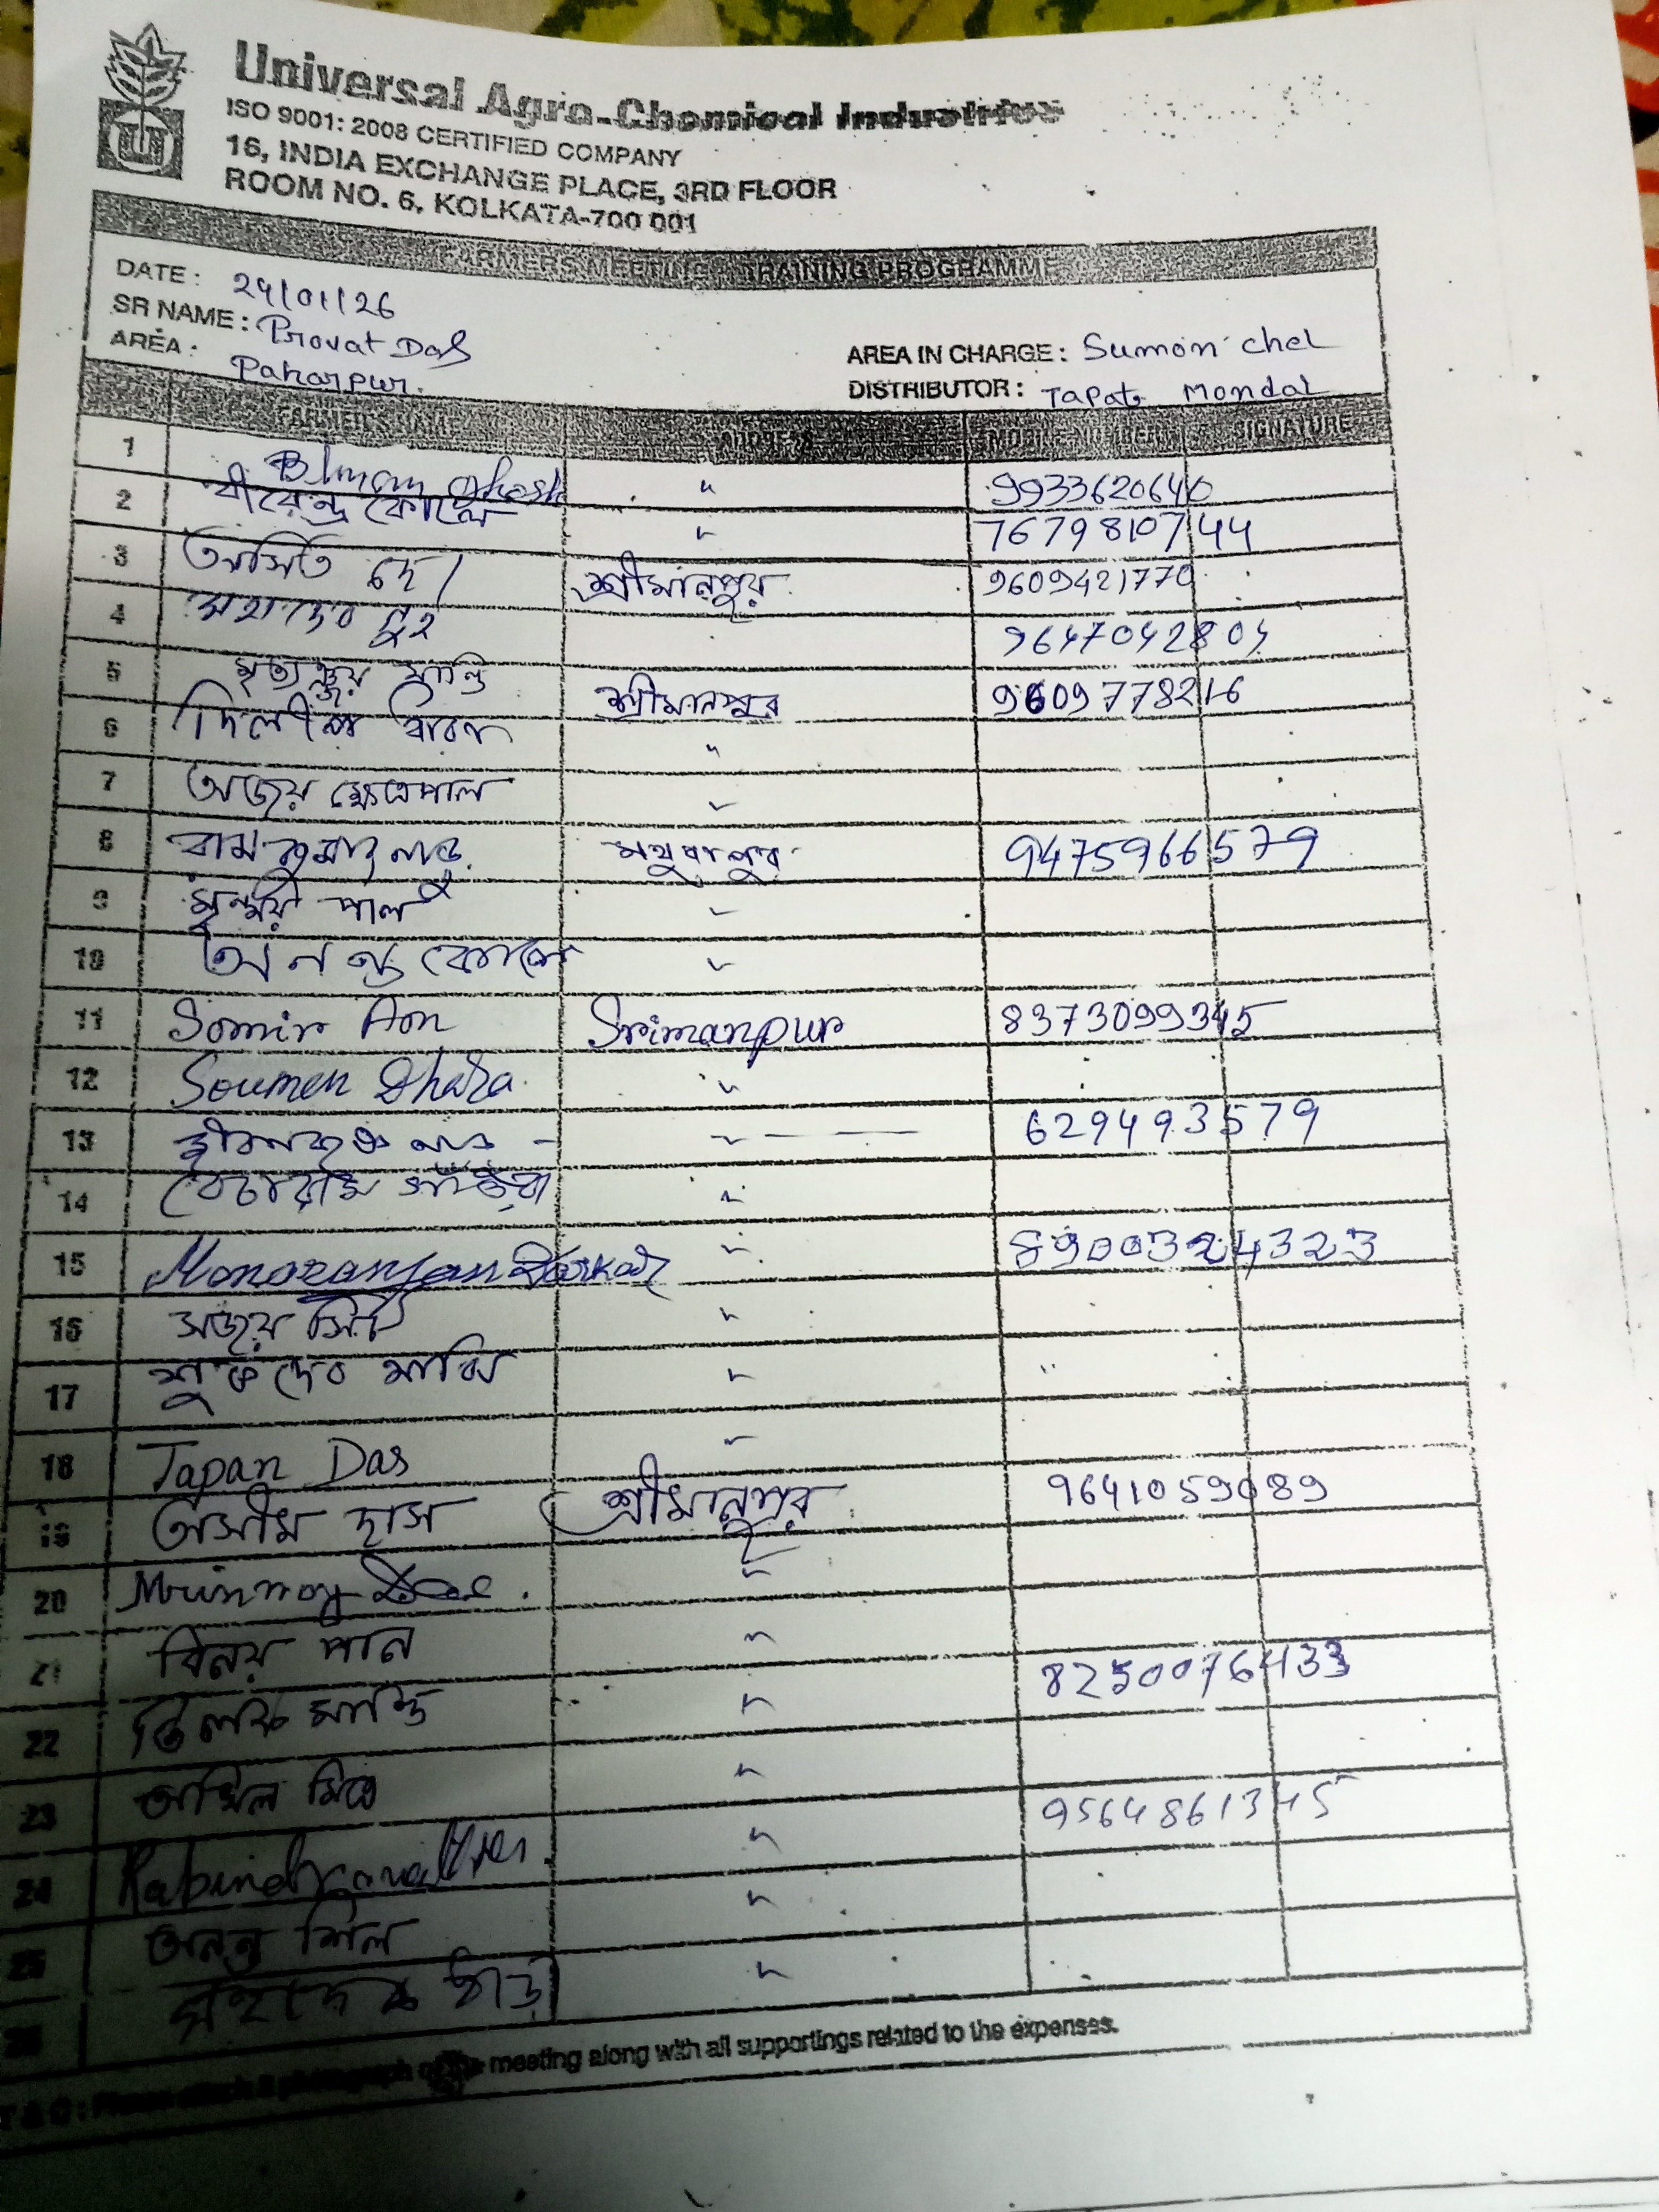 Universal Agro-Chemical Industries
ISO 9001: 2008 CERTIFIED COMPANY
16, INDIA EXCHANGE PLACE, 3RD FLOOR
ROOM NO. 6, KOLKATA-700 001
FARMERS MEETING TRAINING PROGRAMME
DATE : 24/01/26
SR NAME : Provat Das
AREA IN CHARGE : Sumon chel
AREA : Paharpur.
DISTRIBUTOR : Mondal
FARMER'S NAME ADDRESS MOBILE NUMBER SIGNATURE
1 Biman Ghosh " 9933620640
2 বীরেন্দ্র কোলে " 7679810744
3 অসিত দে শ্রীমানপুর 9609421770
4 মহাদেব গুহ 9647042804
5 মৃত্যুঞ্জয় মান্ডি শ্রীমানপুর 9609778216
6 দিলীপ "
7 অজয় ক্ষেত্রপাল "
8 রামকুমার মথুরাপুর 9475966579
9 মৃন্ময় পাল "
10 অনন্ত কোলে "
11 Somir Srimanpur 8373099345
12 Soumen Dhara "
13 " 629493579
14 বেচারাম সাঁতরা "
15 Monoranjan Sarkar " 8900324323
16 সঞ্জয় "
17 শুকদেব মাঝি "
18 Tapan Das "
19 অসীম দাস শ্রীমানপুর 9641059089
20 Mrinmoy "
21 বিনয় পাল " 8250076433
22 তিলক মান্ডি "
23 অখিল মিত্র " 9564861345
24 "
25 অনন্ত শিল "
26 "
meeting along with all supportings related to the expenses.